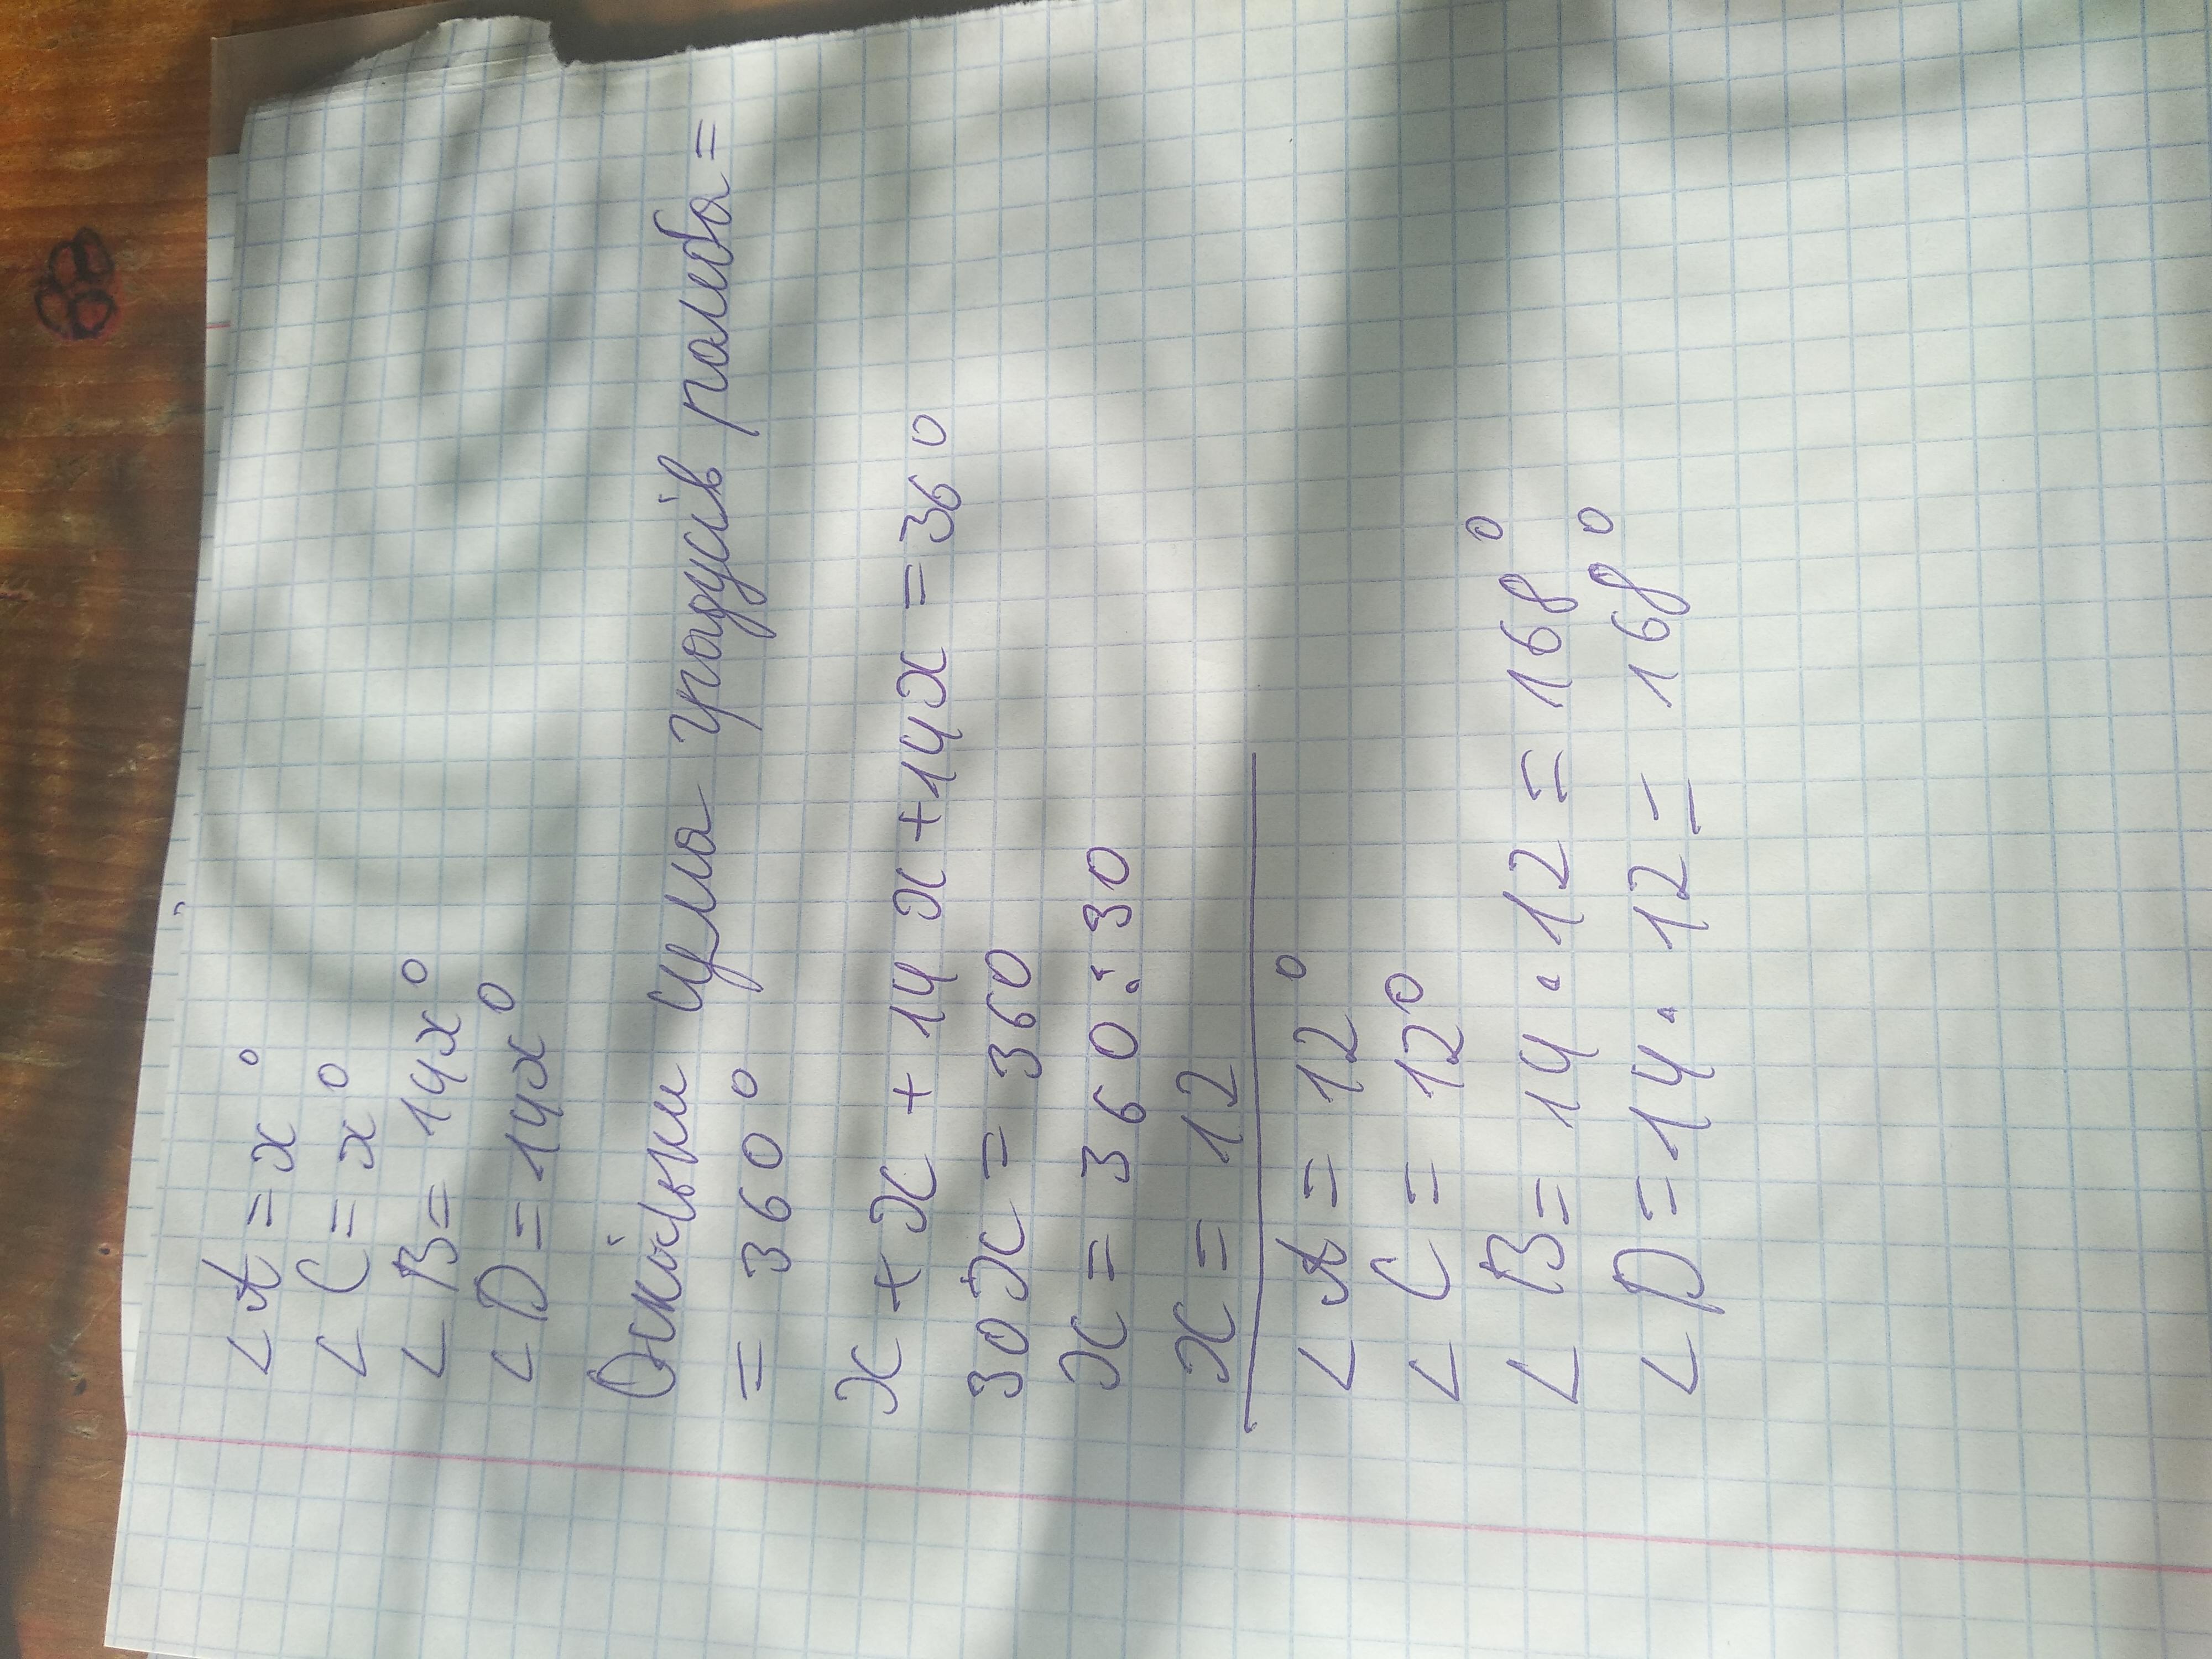 ∠A = x°
∠C = x°
∠B = 14x°
∠D = 14x°
Оскільки сума градусів ромба =
= 360°
x + x + 14x + 14x = 360
30x = 360
x = 360 : 30
x = 12
∠A = 12°
∠C = 12°
∠B = 14 · 12 = 168°
∠D = 14 · 12 = 168°